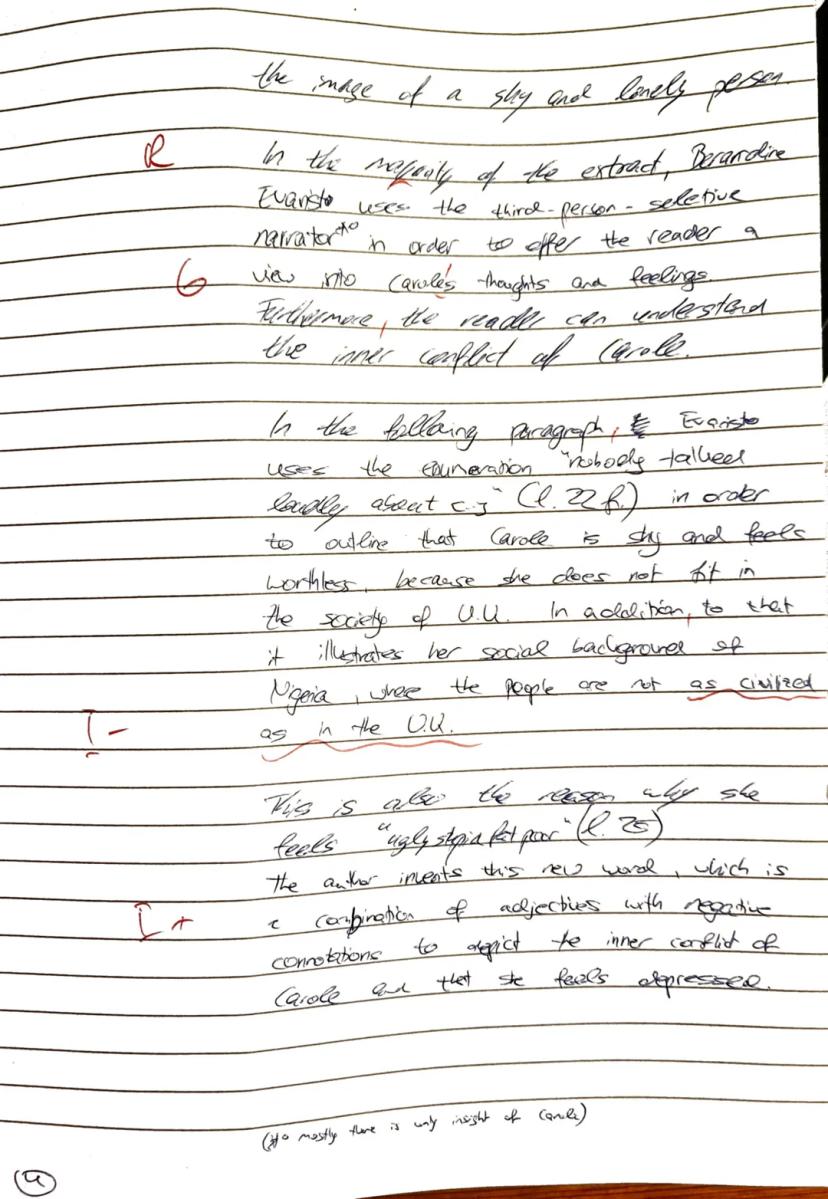 the image of a shy and lonely person
R In the majority of the extract, Berandine
Evaristo uses the third-person-seletive
narrator*° in order to offer the reader a
G view into Carole's thoughts and feelings.
Furthermore, the reader can understand
the inner conflict of Carole.
In the following paragraph, Evaristo
uses the enumeration "nobody talked
loudly about [...]" (l. 22 f.) in order
to outline that Carole is shy and feels
worthless, because she does not fit in
the society of U.K. In addition, to that
it illustrates her social background of
Nigeria, where the people are not as civilized
I - as in the U.K.
This is also the reason why she
feels "uglystupidfatpoor" (l. 25)
The author invents this new word, which is
I + a combination of adjectives with negative
connotations to depict the inner conflict of
Carole and that she feels depressed.
(*° mostly there is only insight of Carole)
4